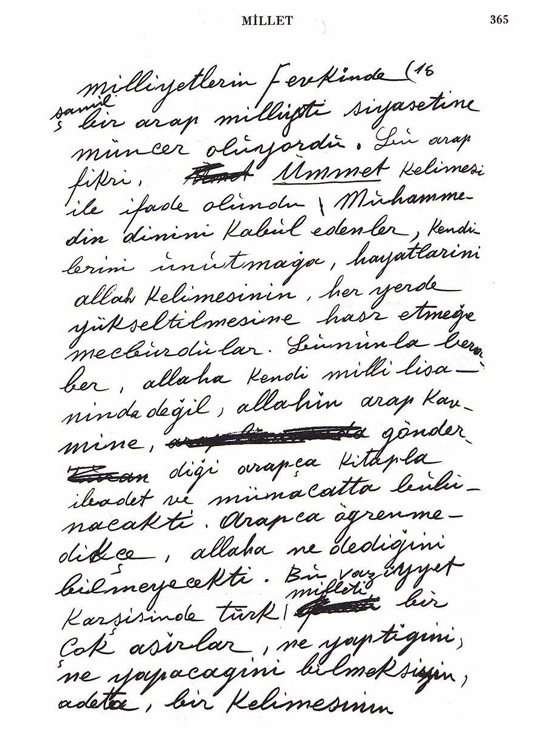 MİLLET 365
milliyetlerin fevkinde (16
şamil
bir arap milliyeti siyasetine
müncer oluyordu. Bu arap
fikri, Ümmet kelimesi
ile ifade olundu \ Muhamme-
din dinini kabul edenler, kendi
lerini unutmağa, hayatlarını
allah kelimesinin, her yerde
yükseltilmesine hasr etmeğe
mecburdular. Bununla bera
ber, allaha kendi milli lisa-
nında değil, allahın arap kav-
mine, gönder
diği arapça kitapla
ibadet ve münacatta bulu-
nacaktı. Arapça öğrenme-
dikçe, allaha ne dediğini
bilmeyecekti. Bu vaziyyet
milleti
karşısında türk | bir
çok asırlar, ne yaptığını,
ne yapacağını bilmeksizin,
adeta, bir kelimesinin